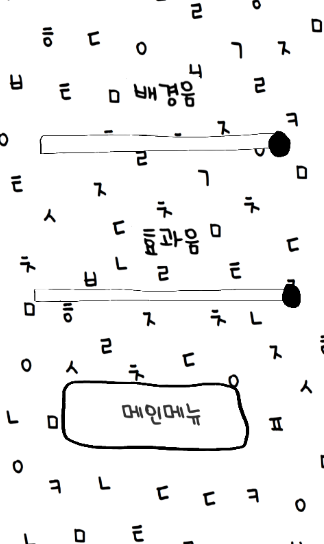 ㄹ
ㅁ
ㅎ ㄷ ㅇ ㄱ ㅈ
ㅂ ㅌ ㅁ 배경음 ㄴ ㄹ
ㅈ ㅋ
ㄹ
ㅌ ㅈ ㄱ ㅁ
ㅅ ㄷ ㅊ ㅊ
효과음 ㅁ ㄷ
ㅊ ㅂ ㄴ ㄹ ㅌ
ㅁ ㅎ ㅈ ㅊ ㄴ
ㄹ ㅈ
ㅇ ㅅ ㅊ ㄷ
ㅇ ㅅ
ㄴ ㅁ 메인메뉴 ㅍ
ㅇ ㅋ ㄴ ㄷ ㄷ ㅋ ㅇ
ㄴ ㅁ ㅌ